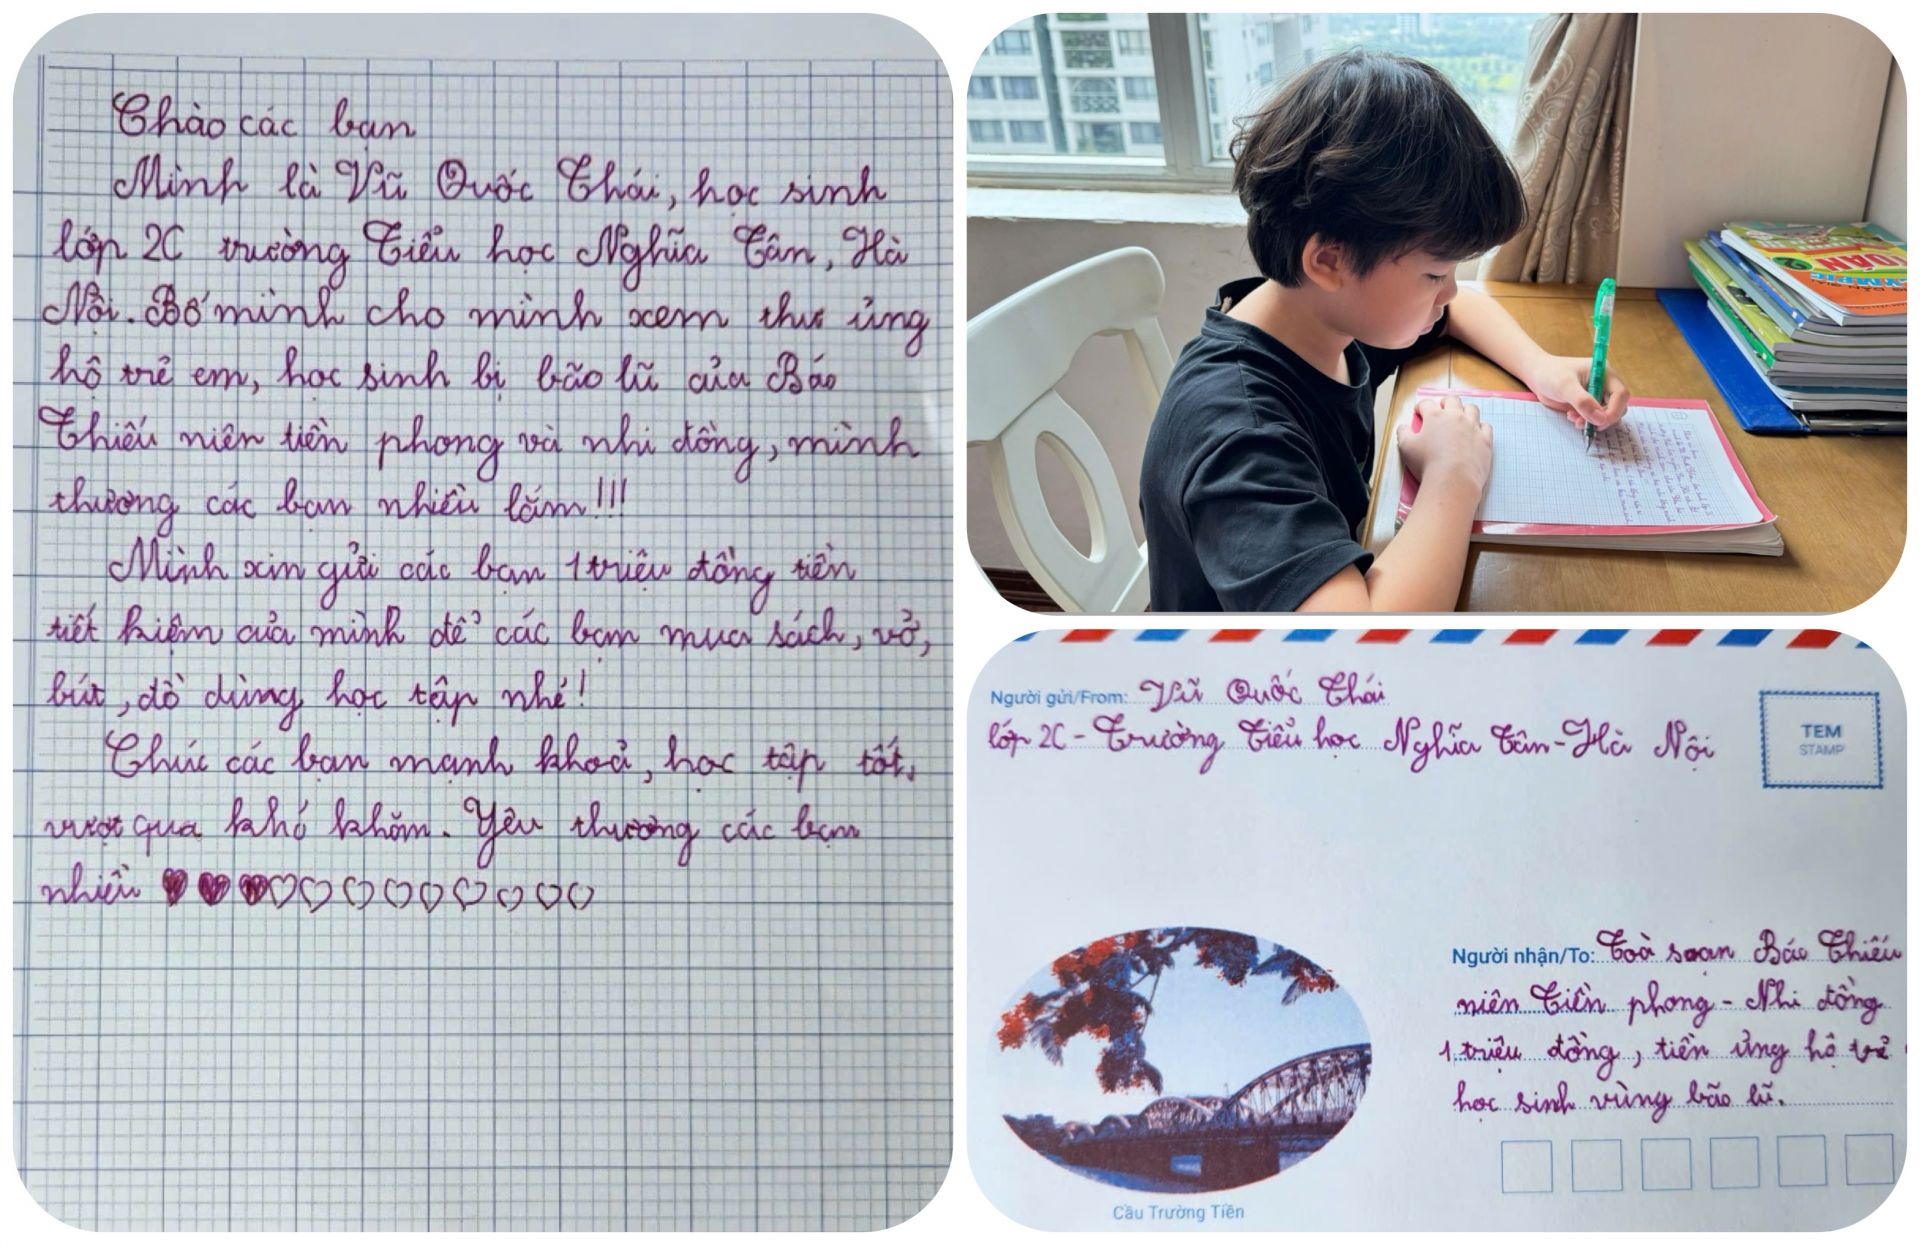 Chào các bạn
Mình là Vũ Quốc Thái, học sinh
lớp 2C trường Tiểu học Nghĩa Tân, Hà
Nội. Bố mình cho mình xem thư ủng
hộ trẻ em, học sinh bị bão lũ của Báo
Thiếu niên tiền phong và nhi đồng, mình
thương các bạn nhiều lắm!!!
Mình xin gửi các bạn 1 triệu đồng tiền
tiết kiệm của mình để các bạn mua sách, vở,
bút, đồ dùng học tập nhé!
Chúc các bạn mạnh khoẻ, học tập tốt,
vượt qua khó khăm. Yêu thương các bạn
nhiều
TOÁN
Người gửi/From: Vũ Quốc Thái
lớp 2C - Trường Tiểu học Nghĩa Tân - Hà Nội
TEM
STAMP
Người nhận/To: Toà soạn Báo Thiếu
niên Tiền phong - Nhi đồng
1 triệu đồng, tiền ủng hộ trẻ
học sinh vùng bão lũ.
Cầu Trường Tiền